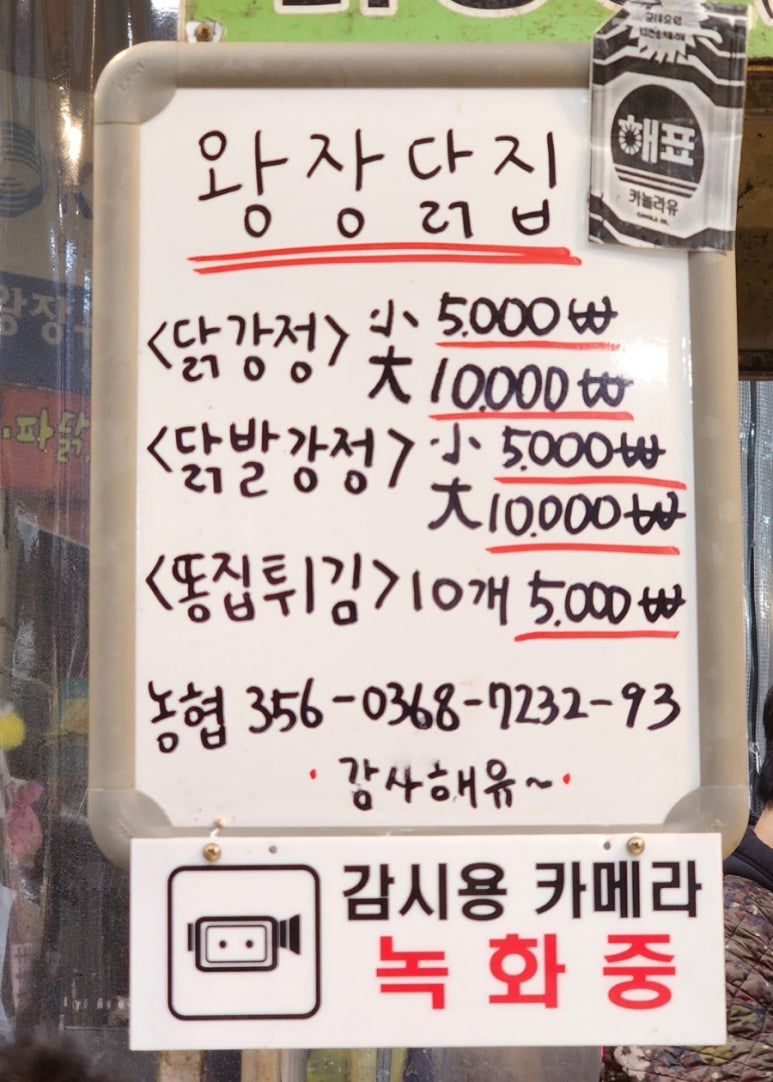 해표
카놀라유
왕장닭집
<닭강정> 小 5.000₩
大 10.000₩
<닭발강정> 小 5.000₩
大 10.000₩
<똥집튀김> 10개 5.000₩
농협 356-0368-7232-93
·감사해유~·
감시용 카메라
녹화중
왕장
파닭